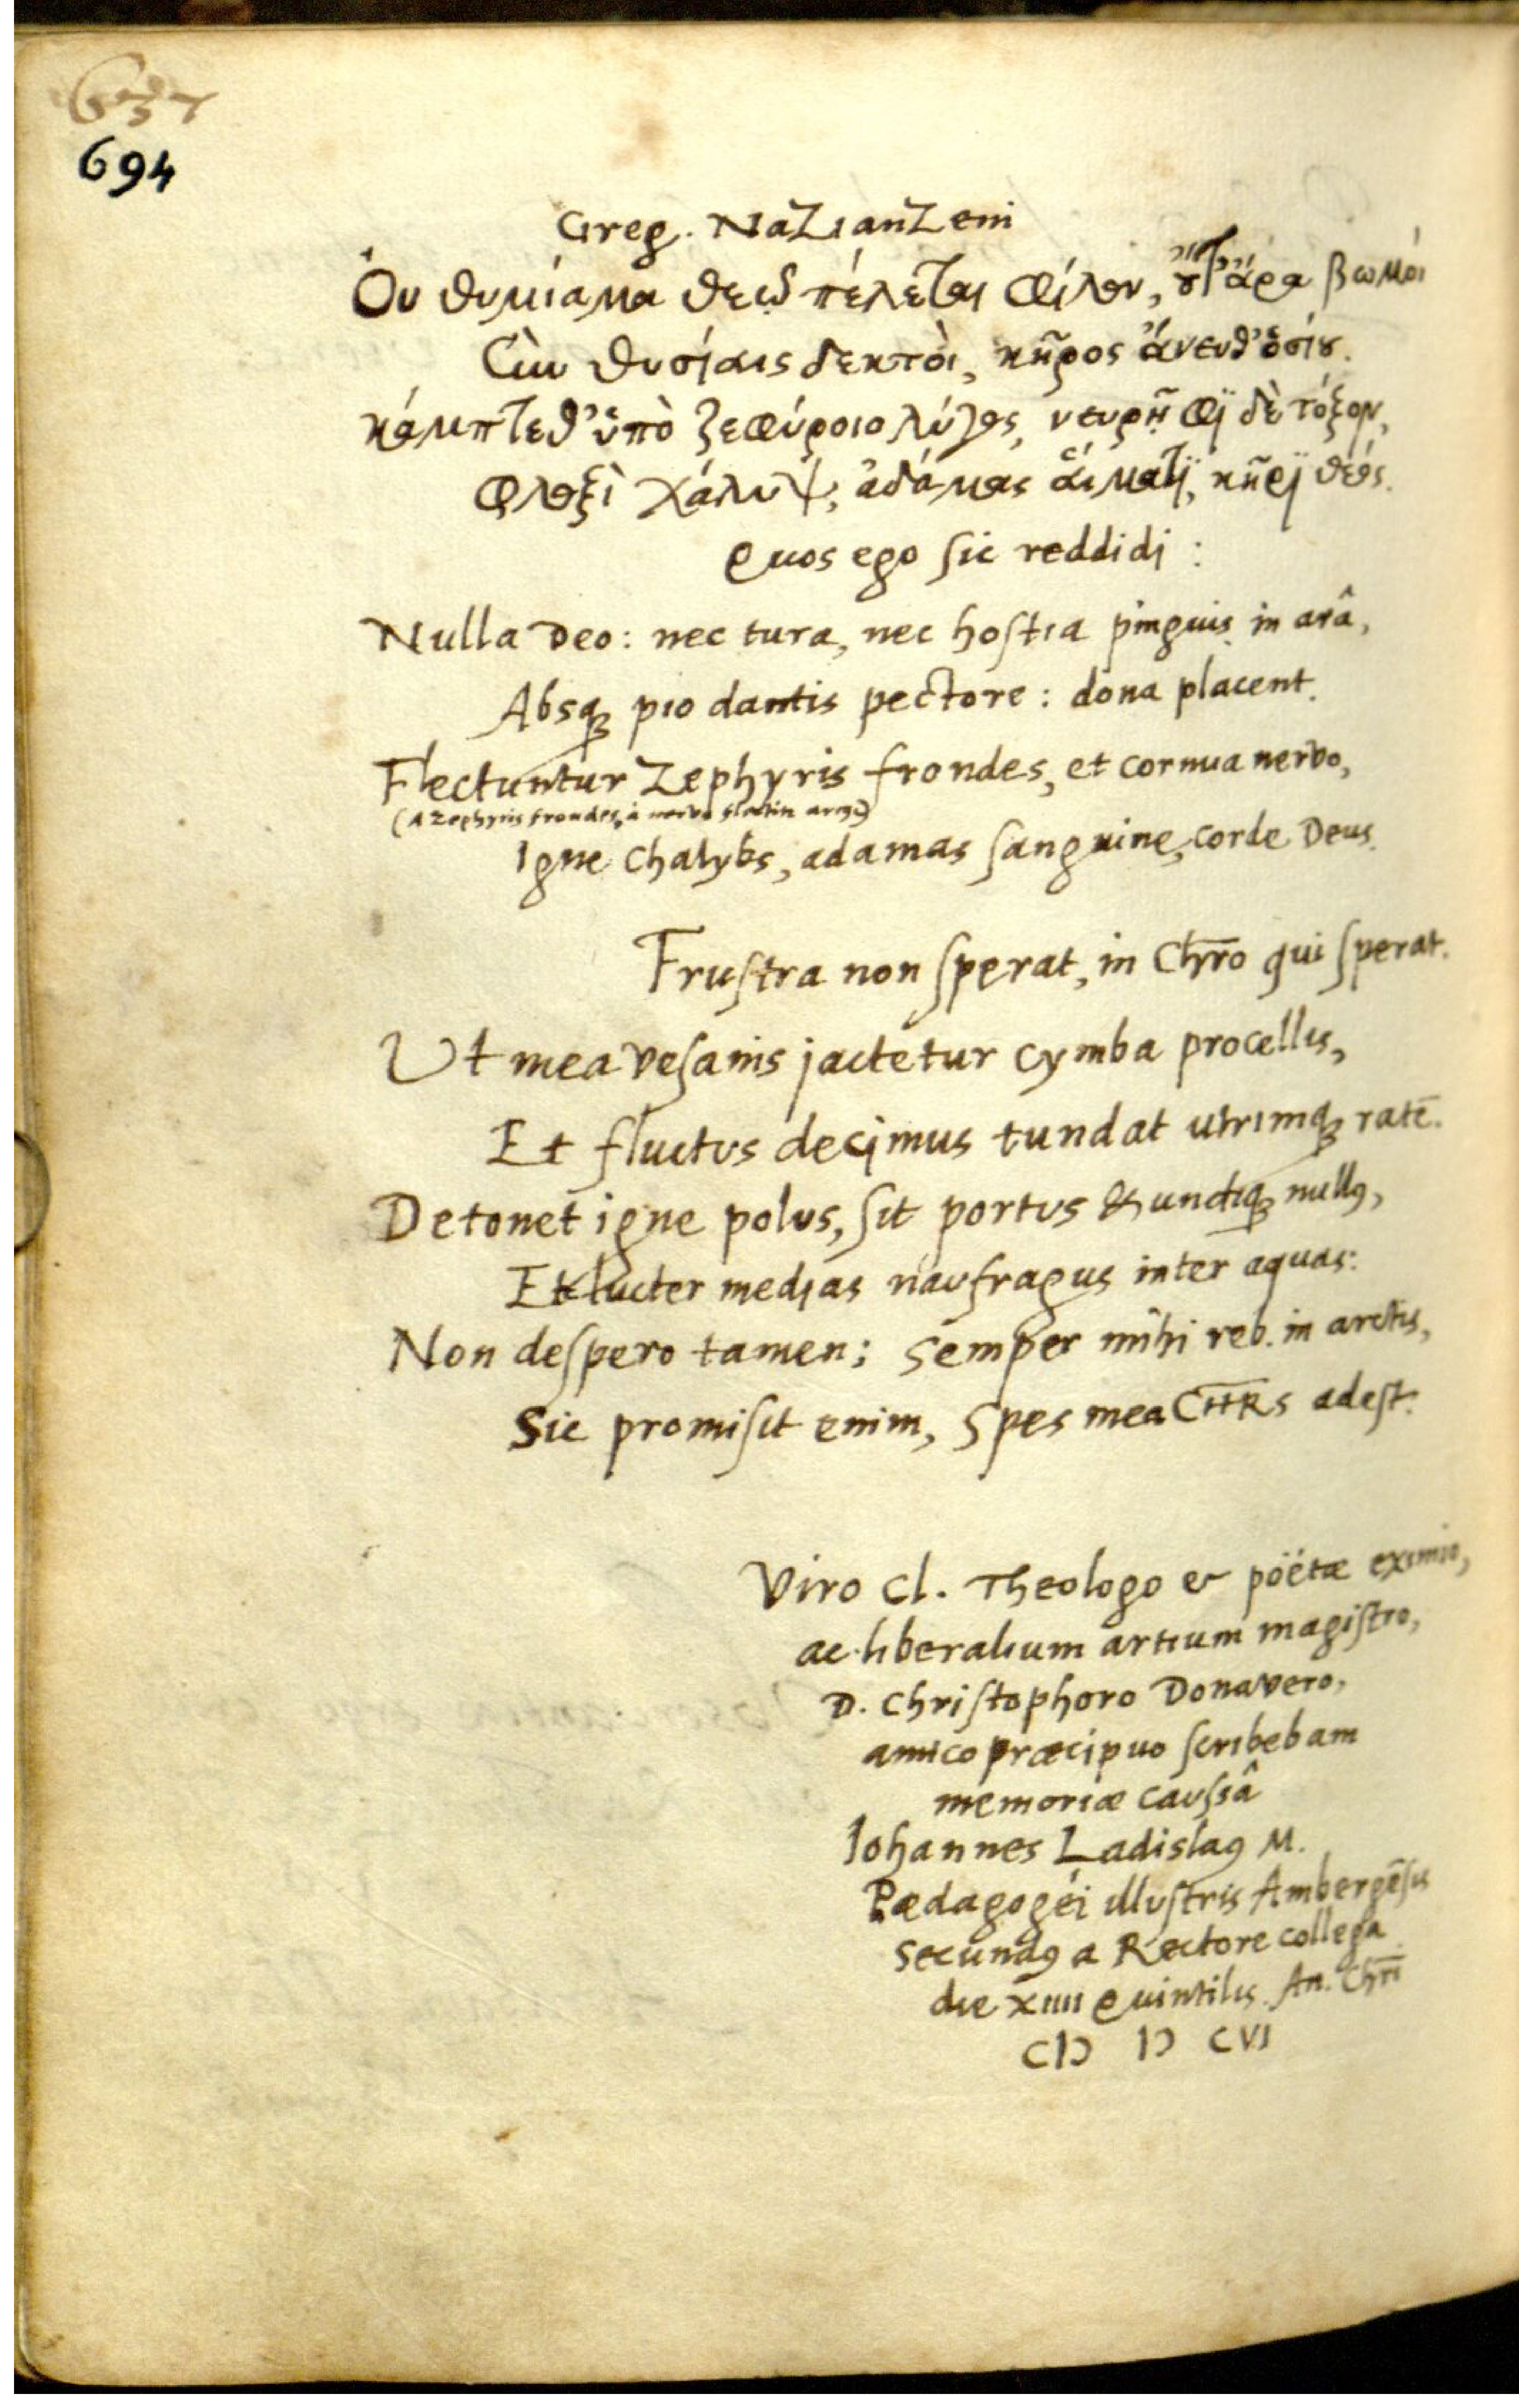 637
694
Greg. Nazianzeni
Ὀυ θυμίαμα θεῷ πέλεται φίλον, ȣ̓́τ' ἄρα βωμόι
Σὺν θυσίαις δεκτὸι, κῆρος ἄνευθ' ὁσίȣ.
κάμπτεθ' ὑπὸ ζεφύροιο λύγος, νευρῆφϊ δὲ τόξον,
φλοξὶ χάλυψ, ἀδάμας ἅιματϊ, κῆρϊ θεός.
Quos ego sic reddidi:
Nulla Deo: nec tura, nec hostia pinguis in arâ,
Absq; pio dantis pectore: dona placent.
Flectuntur Zephyris frondes, et cornua nervo,
(A Zephyris frondes, a nervo flectitur arcus)
Igne Chalybs, adamas sanguine, corde Deus.
Frustra non sperat, in Chr̅o qui sperat.
Ut mea vesanis jactetur cymba procellis,
Et fluctus decimus tundat utrimq; ratē.
Detonet igne polus, sit portus & undiq; nullꝯ,
Et lucter medias naufragus inter aquas:
Non despero tamen; semper mihi reb. in arctis,
Sic promisit enim, Spes mea CH̅R̅s adest.
Viro Cl. Theologo & pöëtæ eximio,
ac liberalium artium magistro,
D. Christophoro Donavero,
amico præcipuo scribebam
memoriæ caussâ
Iohannes Ladislaꝯ M.
Pædagogéi illustris Ambergēsis
secundꝯ a Rectore collega
die XIIII Quintilis. An. Chr̅i
CIƆ IƆ CVI